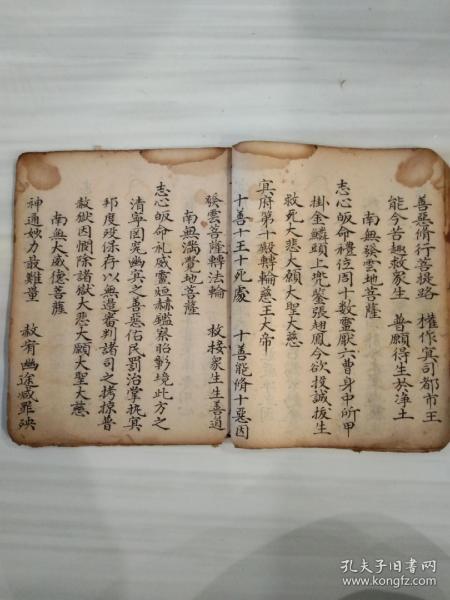 善惡脩行菩提路 權作冥司都市王
能令苦趣救眾生 普願得生於淨土
南無發雲地菩薩
志心皈命禮位周十數靈厭六曹身中所甲
掛金鱗頭上兜鍪張翅鳳今欲投誠拔生
救死大悲大願大聖大慈
冥府第十殿轉輪慈王大帝
十善十王十死處 十善能脩十惡因
發雲菩隆轉法輪 救接眾生生善道
南無滿覺地菩薩
志心皈命礼威靈烜赫鑑察昭彰境此方之
清寧因突幽冥之善惡佑民罰治掌执冥
邦度歿保存以無遺審判諸司之拷掠普
赦獄囚憫除諸獄大悲大願大聖大慈
南無大威德菩薩
神通妙力最難量 赦宥幽途滅罪殃
孔夫子旧书网
www.kongfz.com